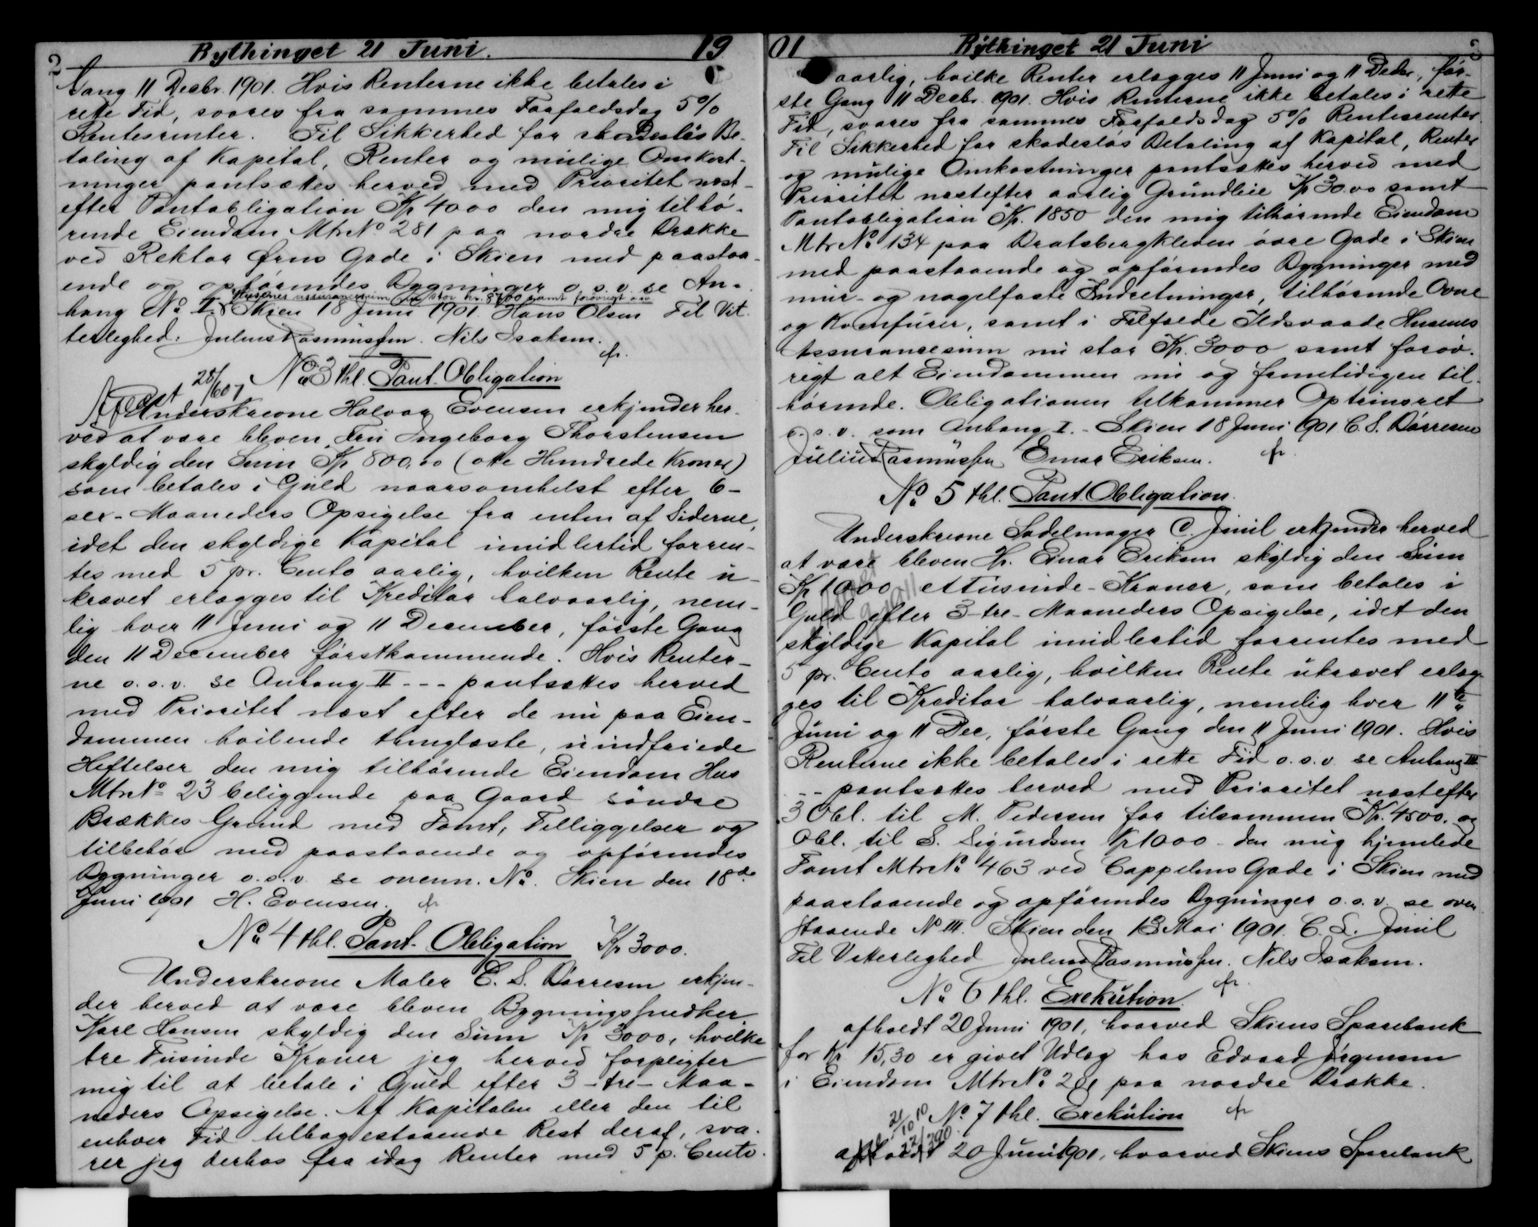 2 Bythinget 21 Juni. 19
Gang 11 Decbr. 1901. Hvis Renterne ikke betales i
rette Tid, svares fra sammes Forfaldsdag 5%
Rentesrenter. Til Sikkerhed for skadeslös Be-
taling af Kapital, Renter og mulige Omkost-
ninger pantsættes herved med Prioritet næst-
efter Pantobligation Kr 4000 den mig tilhö-
rende Eiendom Mtr No 281 paa nordre Brække
ved Rektor Ørns Gade i Skien med paastaa-
ende og opförendes Bygninger o. s. v. se An-
Husenes assurancesum nu stor kr. 8700 samt forövrigt
hang No I. Skien 18 Juni 1901. Hans Olsen Til Vit-
terlighed: Julius Rasmussen. Nils Isaksen.
No 3 thl. Pant. Obligation
Aflæst 28/607
Underskrevne Halvor Evensen erkjender her-
ved at være bleven Fru Ingeborg Thorstensen
skyldig den Sum Kr 800,00 (otte Hundrede Kroner)
som betales i Guld naarsomhelst efter 6-
sex- Maaneders Opsigelse fra enten af Siderne,
idet den skyldige Kapital imidlertid forren-
tes med 5 pr. Cento aarlig, hvilken Rente u-
kravet erlægges til Kreditor halvaarlig, nem-
lig hver 11 Juni og 11 December, förste Gang
den 11 December förstkommende. Hvis Renter-
ne o. s. v. se Anhang II - - - pantsættes herved
med Prioritet næst efter de nu paa Eien-
dommen hvilende thinglæste, uindfriede
Heftelser den mig tilhörende Eiendom Hus
Mtr No 23 beliggende paa Gaard söndre
Brækkes Grund med Tomt, Tilliggelser og
tilbehör med paastaaende og opförendes
Bygninger o. s. v. se ovenn. No. Skien den 18de
Juni 1901 H. Evensen.
No 4 thl. Pant- Obligation Kr 3000.
Underskrevne Maler C. S. Börresen erkjen-
der herved at være bleven Bygningssnedker
Karl Hansen skyldig den Sum Kr 3000, hvilke
tre Tusinde Kroner jeg herved forpligter
mig til at betale i Guld efter 3 - tre - Maa-
neders Opsigelse. Af Kapitalen eller den til
enhver Tid tilbagestaaende Rest deraf, sva-
rer jeg derhos fra idag Renter med 5 p. Cento
01 Bythinget 21 Juni 3
aarlig, hvilke Renter erlægges 11 Juni og 11 Decbr, för-
ste Gang 11 Decbr. 1901. Hvis Renterne ikke betales i rette
Tid, svares fra sammes Forfaldsdag 5% Rentesrenter.
Til Sikkerhed for skadeslös Betaling af Kapital, Renter
og mulige Omkostninger pantsættes herved med
Prioritet næstefter aarlig Grundleie Kr 30.00 samt
Pantobligation Kr. 1850 den mig tilhörende Eiendom
Mtr No 134 paa Bratsbergkleven övre Gade i Skien
med paastaaende og opförendes Bygninger med
mur- og nagelfaste Indretninger, tilhörende Ovne
og Komfurer, samt i Tilfælde Ildsvaade Husenes
Assurancesum nu stor Kr. 3000 samt forøv-
rigt alt Eiendommen nu og fremtidigen til-
hörende. Obligationen tilkommer Optrinsret
o. s. v. som Anhang I. - Skien 18 Juni 1901 C. S. Börresen
Julius Rasmussen Einar Eriksen.
No 5 thl. Pant. Obligation.
Underskrevne Sadelmager C. Juul erkjender herved
at være bleven Hr. Einar Eriksen skyldig den Sum
Kr 1000 ettusinde Kroner, som betales i
Guld efter 3-tre- Maaneders Opsigelse, idet den
skyldige Kapital imidlertid forrentes med
5 pr. Cento aarlig, hvilken Rente ukrævet erlæg-
ges til Kreditor halvaarlig, nemlig hver 11te
Juni og 11 Dec, förste Gang den 11 Juni 1901. Hvis
Renterne ikke betales i rette Tid o. s. v. se Anhang III
- - pantsættes herved med Prioritet næstefter
3 Obl. til M. Pedersen for tilsammen Kr. 4500. og
Obl. til S. Sigurdsen Kr 1000 - den mig hjemlede
Tomt Mtr No 463 ved Cappelens Gade i Skien med
paastaaende og opförendes Bygninger o. s. v. se oven-
staaende No III. Skien den 13 Mai 1901. C. S. Juul
Til Vitterlighed Julius Rasmussen. Nils Isaksen.
No 6 thl. Exekution.
afholdt 20 Juni 1901, hvorved Skiens Sparebank
for Kr 15,30 er givet Udlæg hos Edvard Jörgensen
i Eiendom Mtr No 28 paa nordre Brække.
No 7 thl. Exekution
afholdt 20 Juni 1901, hvorved Skiens Sparebank